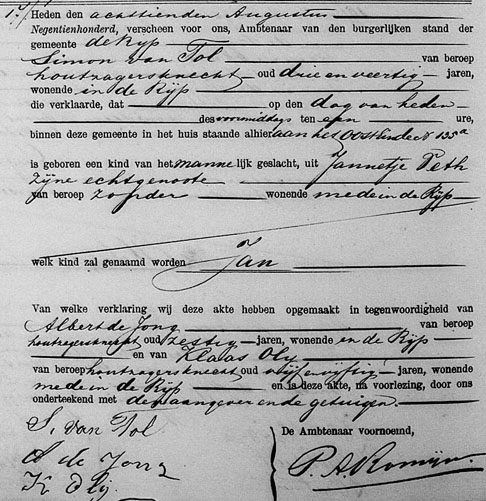 Heden den achttienden Augustus
Negentienhonderd, verscheen voor ons, Ambtenaar van den burgerlijken stand der
gemeente de Ryp
Simon van Tol van beroep
houtzagersknecht oud drie en veertig jaren,
wonende in de Ryp
die verklaarde, dat op den dag van heden
des voormiddags ten een ure,
binnen deze gemeente in het huis staande alhier aan het Oosteinde 135a
is geboren een kind van het mannelijk geslacht, uit Jannetje Peth
zijne echtgenoote
van beroep zonder wonende mede in de Ryp
welk kind zal genaamd worden Jan
Van welke verklaring wij deze akte hebben opgemaakt in tegenwoordigheid van
Albert de Jong van beroep
houtzagersknecht oud zestig jaren, wonende in de Ryp
en van Klaas Oly
van beroep houtzagersknecht oud vijf en vijftig jaren, wonende
mede in de Ryp en is deze akte, na voorlezing, door ons
onderteekend met den aangever en de getuigen.
S. van Tol
A de Jong
K Olij.
De Ambtenaar voornoemd,
P. A. Romijn